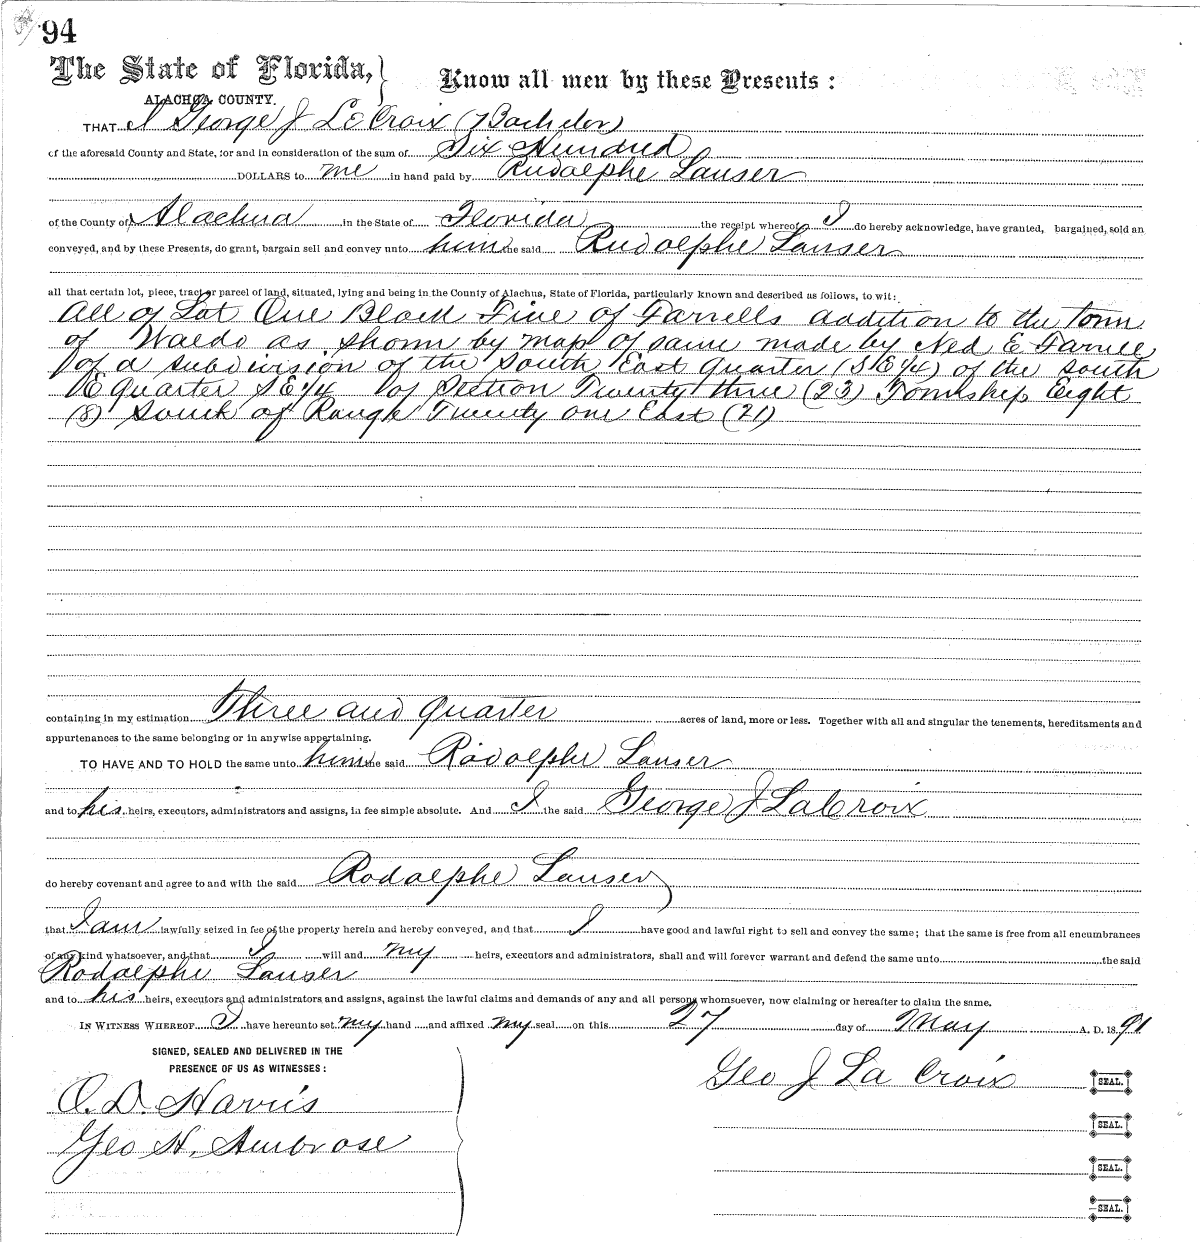 94
The State of Florida,
Know all men by these Presents:
ALACHUA COUNTY.
THAT I George J LeCroix (Bachelor)
of the aforesaid County and State, for and in consideration of the sum of Six Hundred
DOLLARS to me in hand paid by Rudolphe Lauser
of the County of Alachua in the State of Florida the receipt whereof I do hereby acknowledge, have granted, bargained, sold an
conveyed, and by these Presents, do grant, bargain sell and convey unto him the said Rudolphe Lauser
all that certain lot, piece, tract or parcel of land, situated, lying and being in the County of Alachua, State of Florida, particularly known and described as follows, to wit:
All of Lot One Block Five of Farrells addition to the Town
of Waldo as shown by map of same made by Ned E Farrell
of a subdivision of the South East Quarter (S E 1/4) of the South
E quarter S E 1/4 of Section Twenty three (23) Township Eight
(8) South of Range Twenty one East (21)
containing in my estimation Three and quarter acres of land, more or less. Together with all and singular the tenements, hereditaments and
appurtenances to the same belonging or in anywise appertaining.
TO HAVE AND TO HOLD the same unto him the said Rodolphe Lauser
and to his heirs, executors, administrators and assigns, in fee simple absolute. And I the said George J LaCroix
do hereby covenant and agree to and with the said Rodolphe Lauser
that I am lawfully seized in fee of the property herein and hereby conveyed, and that I have good and lawful right to sell and convey the same; that the same is free from all encumbrances
of any kind whatsoever, and that I will and my heirs, executors and administrators, shall and will forever warrant and defend the same unto the said
Rodolphe Lauser
and to his heirs, executors and administrators and assigns, against the lawful claims and demands of any and all persons whomsoever, now claiming or hereafter to claim the same.
IN WITNESS WHEREOF I have hereunto set my hand and affixed my seal on this 27 day of May A. D. 18 91
SIGNED, SEALED AND DELIVERED IN THE
PRESENCE OF US AS WITNESSES:
Geo J La Croix SEAL.
O. D. Harris
SEAL.
Geo H. Ambrose
SEAL.
SEAL.